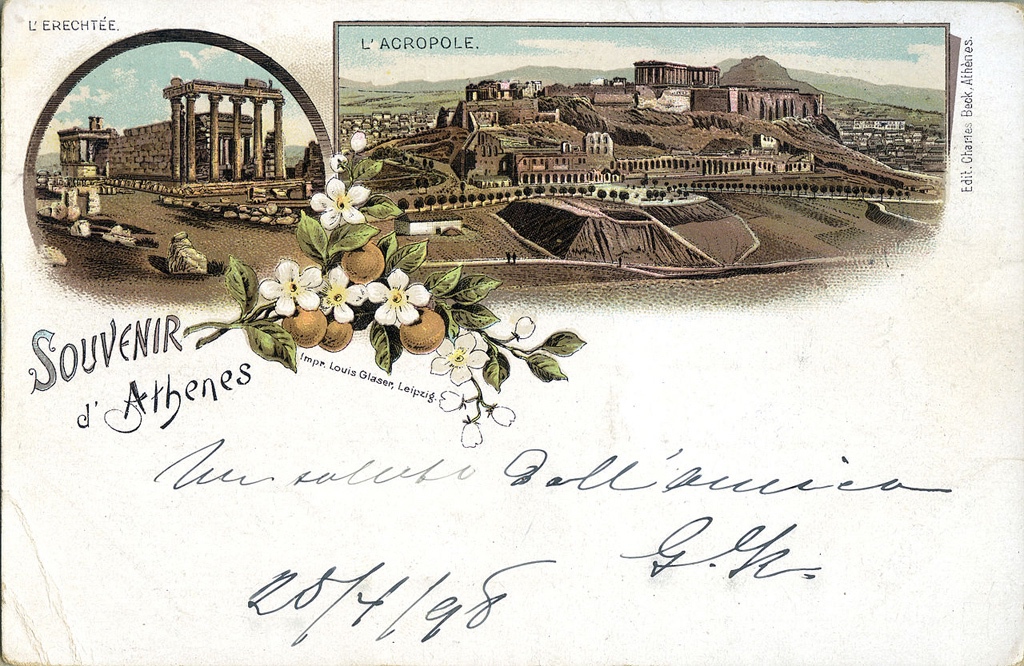 L'ERECHTÉE.
L'ACROPOLE.
Edit. Charles Beck, Athènes.
SOUVENIR
d'Athenes
Impr. Louis Glaser, Leipzig.
Un saluto dall'amica
G. K.
28/4/98